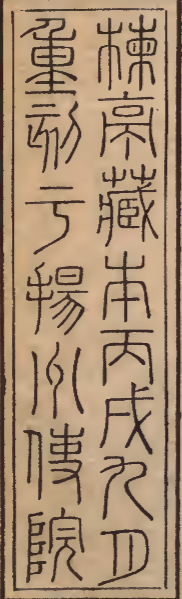 楝亭藏本丙戌九月
重刻于揚州使院